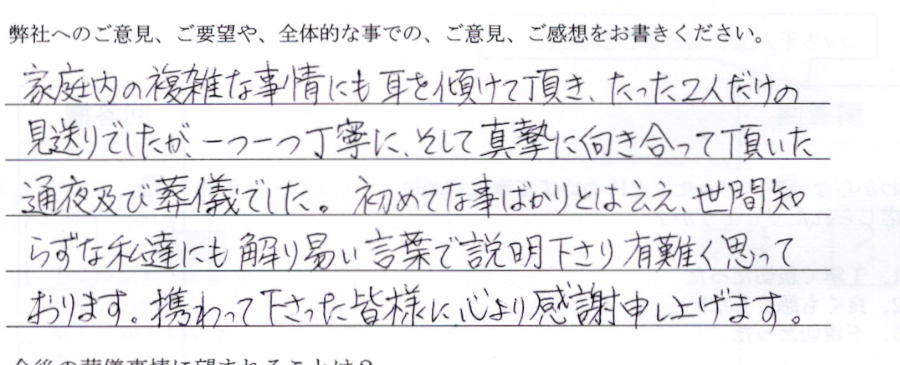 弊社へのご意見、ご要望や、全体的な事での、ご意見、ご感想をお書きください。
家庭内の複雑な事情にも耳を傾けて頂き、たった2人だけの
見送りでしたが、一つ一つ丁寧に、そして真摯に向き合って頂いた
通夜及び葬儀でした。初めてな事ばかりとはえ、世間知
らずな私達にも解り易い言葉で説明下さり有難く思って
おります。携わって下さった皆様に、心より感謝申し上げます。
今後の葬儀事情に望まれることは？